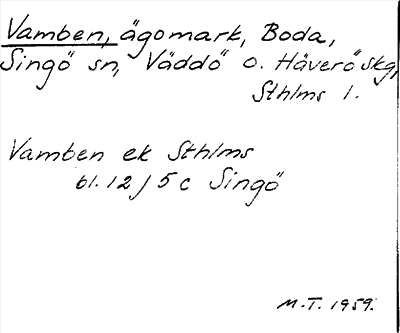 Vamben, ägomark, Boda,
Singö sn, Väddö o. Häverö skg,
Sthlms l.
Vamben ek Sthlms
bl. 12 j 5 c Singö
M.T. 1959.